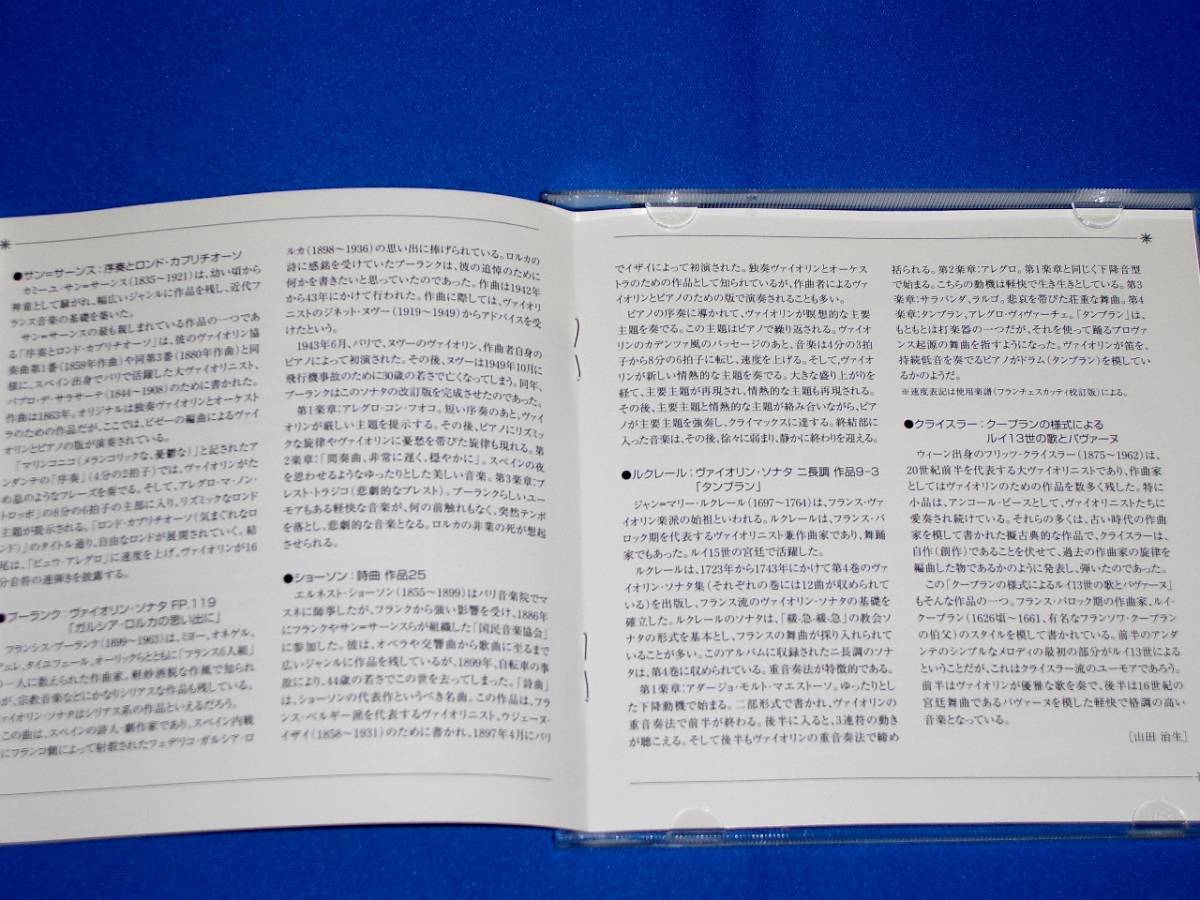 ●サン=サーンス：序奏とロンド・カプリチオーソ
カミーユ・サン=サーンス（1835～1921）は、幼い頃から
神童として騒がれ、幅広いジャンルに作品を残し、近代フ
ランス音楽の基礎を築いた。
サン=サーンスの最も親しまれている作品の一つであ
る「序奏とロンド・カプリチオーソ」は、彼のヴァイオリン協
奏曲第1番（1859年作曲）や同第3番（1880年作曲）と同
様に、スペイン出身でパリで活躍した大ヴァイオリニスト、
パブロ・デ・サラサーテ（1844～1908）のために書かれた。
作曲は1863年。オリジナルは独奏ヴァイオリンとオーケスト
ラのための作品だが、ここでは、ビゼーの編曲によるヴァイ
オリンとピアノの版が演奏されている。
「マリンコニコ（メランコリックな、憂鬱な）」と記されたア
ンダンテの「序奏」（4分の2拍子）では、ヴァイオリンがた
め息のようなフレーズを奏でる。そして、アレグロ・マ・ノン・
トロッポ」の8分の6拍子の主部に入り、リズミックなロンド
主題が提示される。「ロンド・カプリチオーソ（気まぐれなロ
ンド）」のタイトル通り、自由なロンドが展開されていく。結
尾は、「ピュウ・アレグロ」に速度を上げ、ヴァイオリンが16
分音符の連弾きを披露する。
●プーランク：ヴァイオリン・ソナタ FP.119
「ガルシア・ロルカの思い出に」
フランシス・プーランク（1899～1963）は、ミヨー、オネゲル、
デュレ、タイユフェール、オーリックらとともに「フランス6人組」
の一人に数えられた作曲家。軽妙洒脱な作風で知られ
が、宗教音楽などにかなりシリアスな作品も残している。
ヴァイオリン・ソナタはシリアス系の作品といえるだろう。
この曲は、スペインの詩人・劇作家であり、スペイン内戦
にフランコ側によって射殺されたフェデリコ・ガルシア・ロ
ルカ（1898～1936）の思い出に捧げられている。ロルカの
詩に感銘を受けていたプーランクは、彼の追悼のために
何かを書きたいと思っていたのであった。作曲は1942年
から43年にかけて行われた。作曲に際しては、ヴァイオリ
ニストのジネット・ヌヴー（1919～1949）からアドバイスを受
けたという。
1943年6月、パリで、ヌヴーのヴァイオリン、作曲者自身の
ピアノによって初演された。その後、ヌヴーは1949年10月に
飛行機事故のために30歳の若さで亡くなってしまう。同年、
プーランクはこのソナタの改訂版を完成させたのであった。
第1楽章：アレグロ・コン・フオコ。短い序奏のあと、ヴァイ
オリンが厳しい主題を提示する。その後、ピアノにリズミッ
クな旋律やヴァイオリンに憂愁を帯びた旋律も現れる。第
2楽章：「間奏曲、非常に遅く、穏やかに」。スペインの夜
を思わせるようなゆったりとした美しい音楽。第3楽章：プ
レスト・トラジコ（悲劇的なプレスト）。プーランクらしいユー
モアもある軽快な音楽が、何の前触れもなく、突然テンポ
を落とし、悲劇的な音楽となる。ロルカの非業の死が想起
させられる。
●ショーソン：詩曲 作品25
エルネスト・ショーソン（1855～1899）はパリ音楽院でマ
スネに師事したが、フランクから強い影響を受け、1886年
にフランクやサン=サーンスらが組織した「国民音楽協会」
に参加した。彼は、オペラや交響曲から歌曲に至るまで
広いジャンルに作品を残しているが、1899年、自転車の事
故により、44歳の若さでこの世を去ってしまった。「詩曲」
は、ショーソンの代表作というべき名曲。この作品は、フラ
ンス・ベルギー派を代表するヴァイオリニスト、ウジェーヌ・
イザイ（1858～1931）のために書かれ、1897年4月にパリ
でイザイによって初演された。独奏ヴァイオリンとオーケス
トラのための作品として知られているが、作曲者によるヴァ
イオリンとピアノのための版で演奏されることも多い。
ピアノの序奏に導かれて、ヴァイオリンが瞑想的な主要
主題を奏でる。この主題はピアノで繰り返される。ヴァイオ
リンのカデンツァ風のパッセージのあと、音楽は4分の3拍子
から8分の6拍子に転じ、速度を上げる。そして、ヴァイオ
リンが新しい情熱的な主題を奏でる。大きな盛り上がりを
経て、主要主題が再現され、情熱的な主題も再現される。
その後、主要主題と情熱的な主題が絡み合いながら、ピア
ノが主要主題を強奏し、クライマックスに達する。終結部に
入った音楽は、その後、徐々に弱まり、静かに終わりを迎える。
●ルクレール：ヴァイオリン・ソナタ ニ長調 作品9-3
「タンブラン」
ジャン=マリー・ルクレール（1697～1764）は、フランス・ヴァ
イオリン楽派の始祖といわれる。ルクレールは、フランス・バ
ロック期を代表するヴァイオリニスト兼作曲家であり、舞踊
家でもあった。ルイ15世の宮廷で活躍した。
ルクレールは、1723年から1743年にかけて第4巻のヴァ
イオリン・ソナタ集（それぞれの巻には12曲が収められて
いる）を出版し、フランス流のヴァイオリン・ソナタの基礎を
確立した。ルクレールのソナタは、「緩-急-緩-急」の教会ソ
ナタの形式を基本とし、フランスの舞曲が採り入れられて
いることが多い。このアルバムに収録されたニ長調のソナ
タは、第4巻に収められている。重音奏法が特徴的である。
第1楽章：アダージョ・モルト・マエストーソ。ゆったりとし
た下降動機で始まる。二部形式で書かれ、ヴァイオリンの
重音奏法で前半が終わる。後半に入ると、3連符の動き
が聴こえる。そして後半もヴァイオリンの重音奏法で締め
括られる。第2楽章：アレグロ。第1楽章と同じく下降音型
で始まる。こちらの動機は軽快で生き生きとしている。第3
楽章：サラバンダ、ラルゴ。悲哀を帯びた荘重な舞曲。第4
楽章：タンブラン、アレグロ・ヴィヴァーチェ。「タンブラン」は、
もともとは打楽器の一つだが、それを使って踊るプロヴァ
ンス起源の舞曲を指すようになった。ヴァイオリンが笛を、
持続低音を奏でるピアノがドラム（タンブラン）を模してい
るかのようだ。
※速度表記は使用楽譜（フランチェスカッティ校訂版）による。
●クライスラー：クープランの様式による
ルイ13世の歌とパヴァーヌ
ウィーン出身のフリッツ・クライスラー（1875～1962）は、
20世紀前半を代表する大ヴァイオリニストであり、作曲家
としてはヴァイオリンのための作品を数多く残した。特に
小品は、アンコール・ピースとして、ヴァイオリニストたちに
愛奏され続けている。それらの多くは、古い時代の作曲
家を模して書かれた擬古典的な作品で、クライスラーは、
自作（創作）であることを伏せて、過去の作曲家の旋律を
編曲した物であるかのように発表し、弾いたのであった。
この「クープランの様式によるルイ13世の歌とパヴァーヌ」
もそんな作品の一つ。フランス・バロック期の作曲家、ルイ・
クープラン（1626頃～1661、有名なフランソワ・クープラン
の伯父）のスタイルを模して書かれている。前半のアンダ
ンテのシンプルなメロディの最初の部分がルイ13世による
ということだが、これはクライスラー流のユーモアであろう。
前半はヴァイオリンが優雅な歌を奏で、後半は16世紀の
宮廷舞曲であるパヴァーヌを模した軽快で格調の高い
音楽となっている。
［山田 治生］